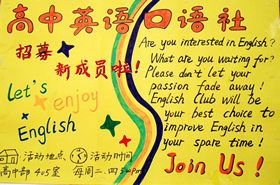 高中英语口语社
招募
新成员啦!
Let's
enjoy
English
活动地点:
高中部 405室
活动时间
每周二.四
Are you interested in English?
What are you waiting for?
Please don't let your
passion fade away!
English Club will be
your best choice to
improve English in
your spare time!
Join Us!